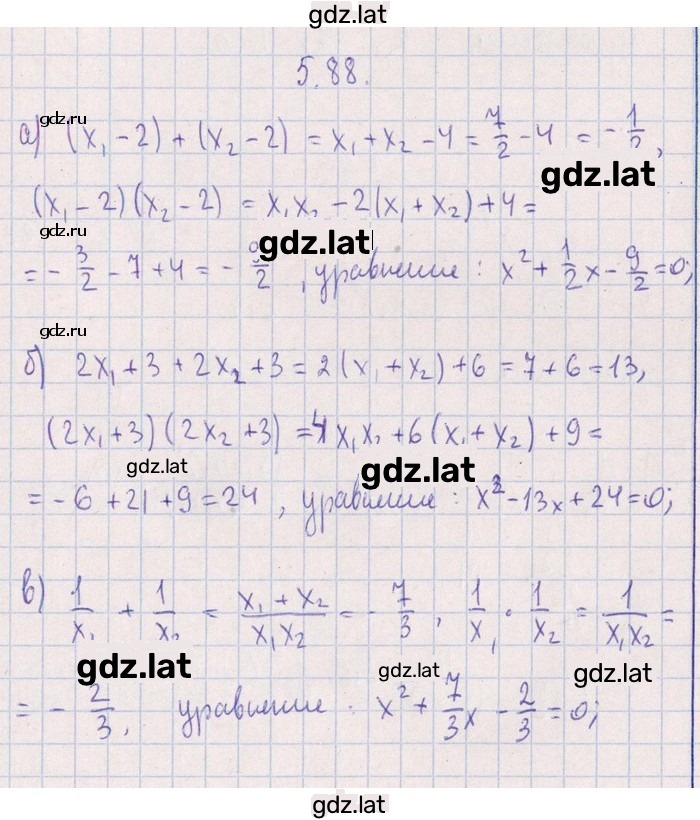 gdz.lat
5.88.
gdz.ru
а) (x₁ - 2) + (x₂ - 2) = x₁ + x₂ - 4 = 7/2 - 4 = - 1/2,
gdz.lat
(x₁ - 2)(x₂ - 2) = x₁x₂ - 2(x₁ + x₂) + 4 =
gdz.ru gdz.lat
= - 3/2 - 7 + 4 = - 9/2, уравнение: x² + 1/2 x - 9/2 = 0;
gdz.ru
б) 2x₁ + 3 + 2x₂ + 3 = 2(x₁ + x₂) + 6 = 7 + 6 = 13,
(2x₁ + 3)(2x₂ + 3) = 4x₁x₂ + 6(x₁ + x₂) + 9 =
gdz.lat gdz.lat
= - 6 + 21 + 9 = 24, уравнение: x² - 13x + 24 = 0;
в) 1/x₁ + 1/x₂ = (x₁ + x₂)/(x₁x₂) = - 7/3, 1/x₁ · 1/x₂ = 1/(x₁x₂) =
gdz.lat gdz.lat gdz.lat
= - 2/3, уравнение: x² + 7/3 x - 2/3 = 0;
gdz.lat